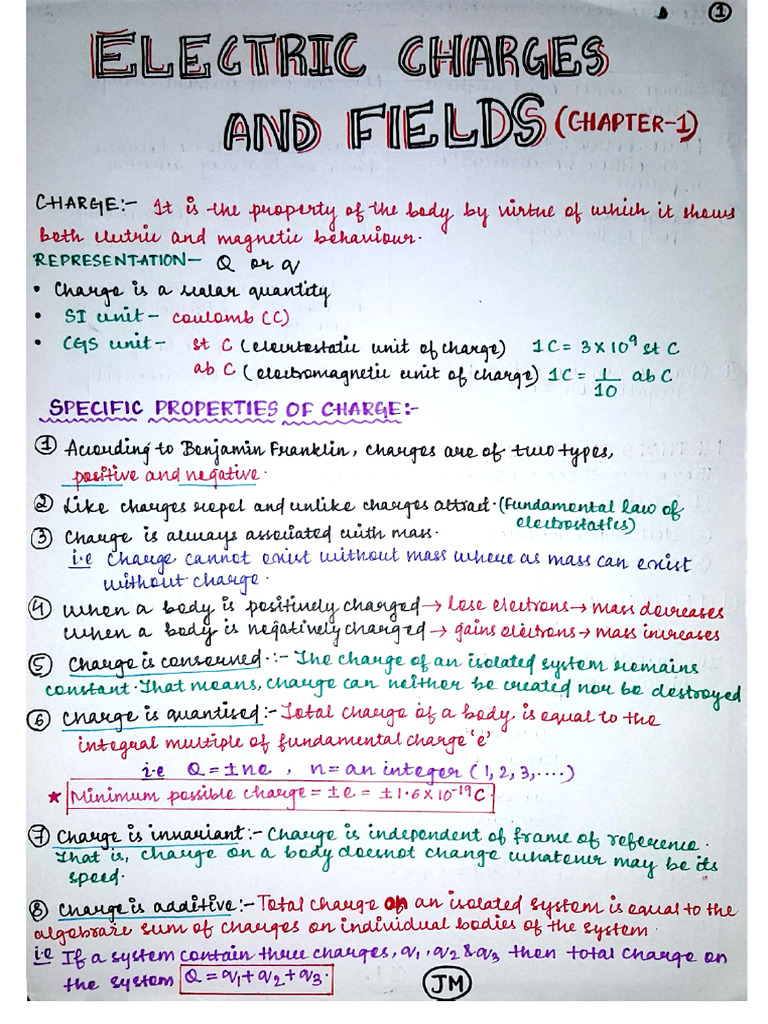 1
ELECTRIC CHARGES
AND FIELDS (CHAPTER-1)
CHARGE:- It is the property of the body by virtue of which it shows
both electric and magnetic behaviour.
REPRESENTATION- Q or q
• Charge is a scalar quantity
• SI unit - coulomb (C)
• CGS unit - st C (electrostatic unit of charge) 1C = 3 x 10⁹ st C
ab C (electromagnetic unit of charge) 1C = 1/10 ab C
SPECIFIC PROPERTIES OF CHARGE:-
① According to Benjamin Franklin, charges are of two types,
positive and negative.
② Like charges repel and unlike charges attract. (Fundamental law of
electrostatics)
③ Charge is always associated with mass.
i.e Charge cannot exist without mass where as mass can exist
without charge.
④ When a body is positively charged → lose electrons → mass decreases
When a body is negatively charged → gains electrons → mass increases
⑤ Charge is conserved.:- The charge of an isolated system remains
constant. That means, charge can neither be created nor be destroyed
⑥ Charge is quantised:- Total charge of a body is equal to the
integral multiple of fundamental charge 'e'
i.e Q = ±ne , n = an integer (1, 2, 3, ....)
★ Minimum possible charge = ±e = ±1.6 x 10⁻¹⁹C
⑦ Charge is invariant:- Charge is independent of frame of reference.
That is, charge on a body doesnot change whatever may be its
speed.
⑧ Charge is additive:- Total charge on an isolated system is equal to the
algebraic sum of charges on individual bodies of the system.
i.e If a system contain three charges, q₁, q₂ & q₃ then total charge on
the system Q = q₁ + q₂ + q₃.
JM